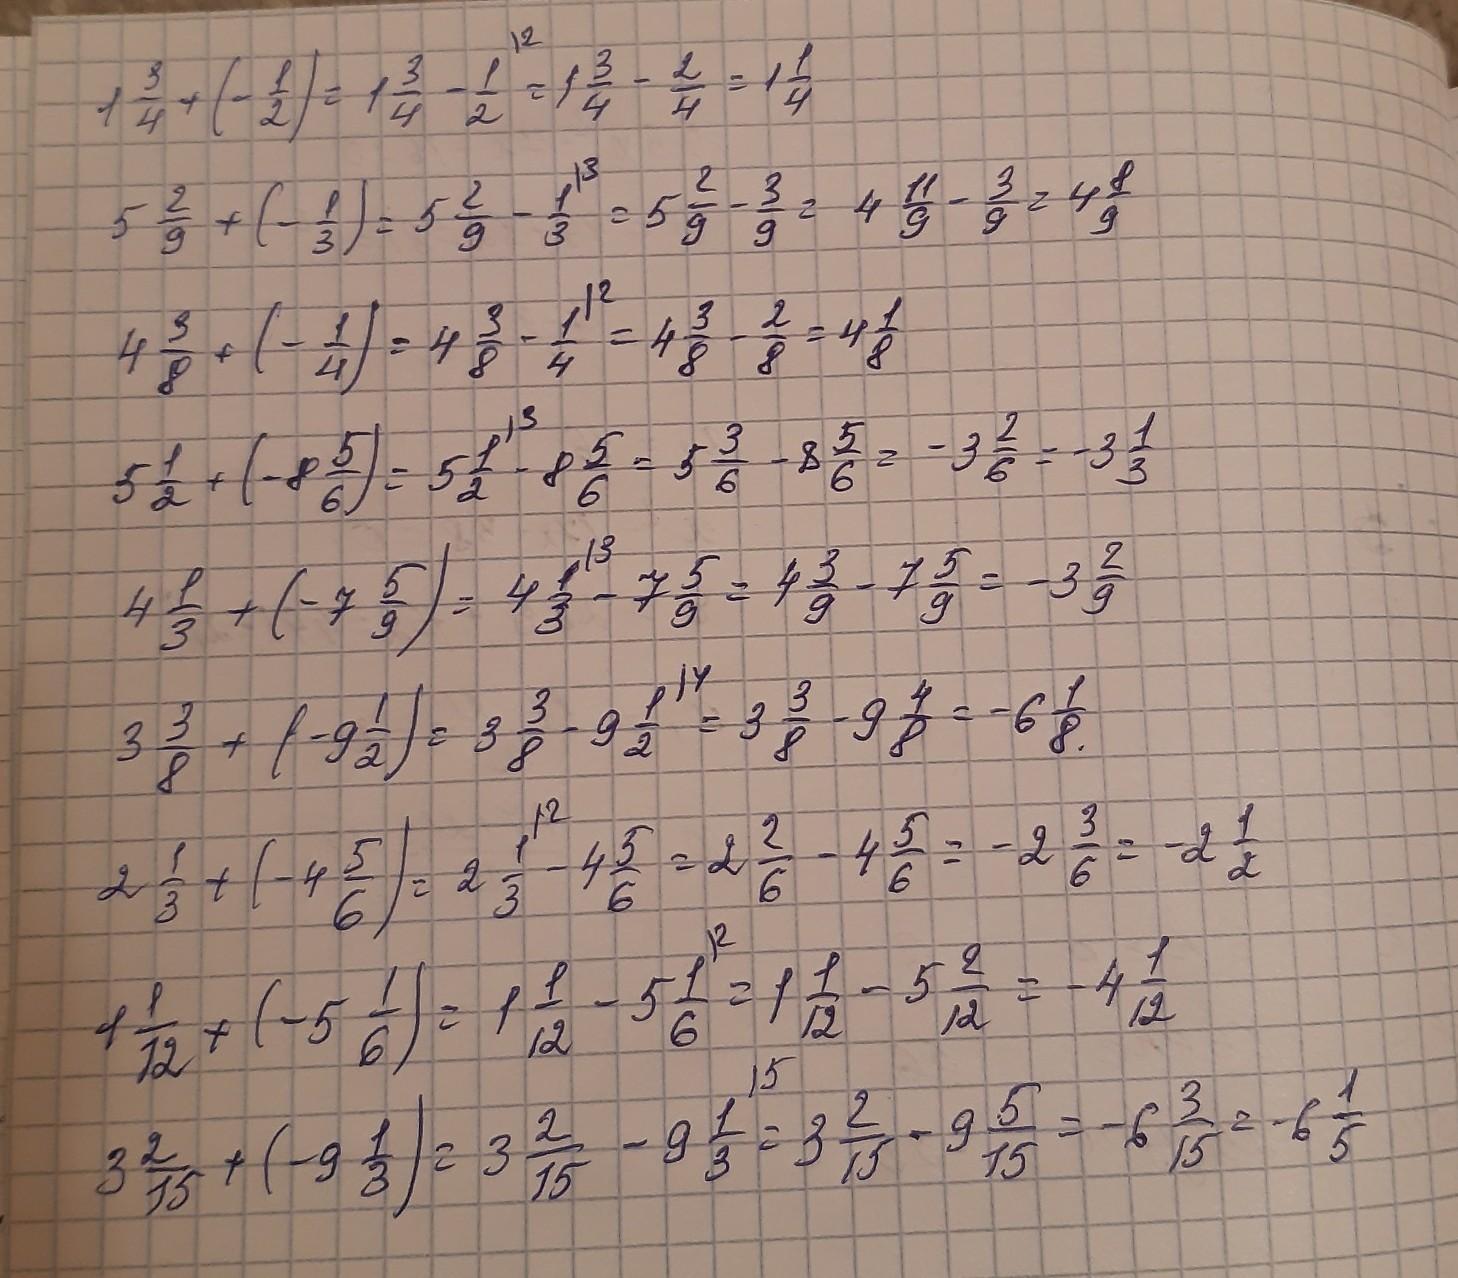 1 3/4 + (- 1/2) = 1 3/4 - 1/2 |2 = 1 3/4 - 2/4 = 1 1/4
5 2/9 + (- 1/3) = 5 2/9 - 1/3 |3 = 5 2/9 - 3/9 = 4 11/9 - 3/9 = 4 8/9
4 3/8 + (- 1/4) = 4 3/8 - 1/4 |2 = 4 3/8 - 2/8 = 4 1/8
5 1/2 + (-8 5/6) = 5 1/2 |3 - 8 5/6 = 5 3/6 - 8 5/6 = -3 2/6 = -3 1/3
4 1/3 + (-7 5/9) = 4 1/3 |3 - 7 5/9 = 4 3/9 - 7 5/9 = -3 2/9
3 3/8 + (-9 1/2) = 3 3/8 - 9 1/2 |4 = 3 3/8 - 9 4/8 = -6 1/8.
2 1/3 + (-4 5/6) = 2 1/3 |2 - 4 5/6 = 2 2/6 - 4 5/6 = -2 3/6 = -2 1/2
1 1/12 + (-5 1/6) = 1 1/12 - 5 1/6 |2 = 1 1/12 - 5 2/12 = -4 1/12
3 2/15 + (-9 1/3) = 3 2/15 - 9 1/3 |5 = 3 2/15 - 9 5/15 = -6 3/15 = -6 1/5